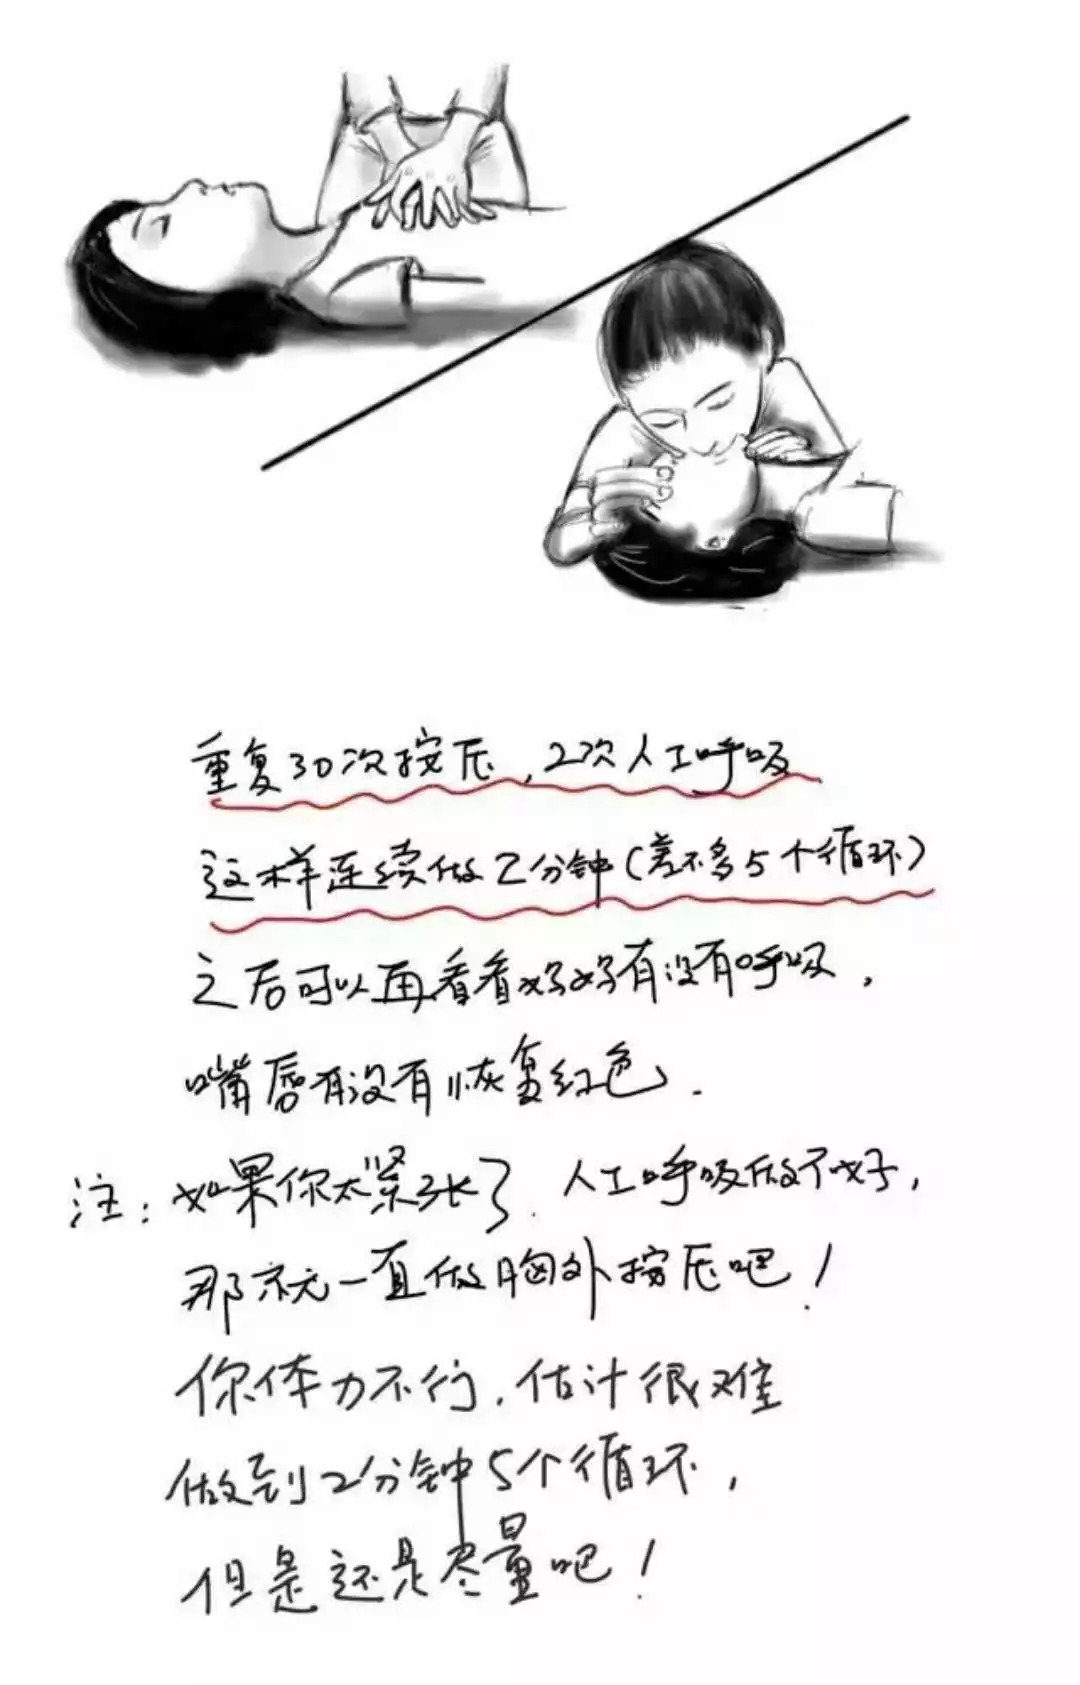 重复30次按压，2次人工呼吸
这样连续做2分钟(差不多5个循环)
之后可以再看看妈妈有没有呼吸，
嘴唇有没有恢复红色.
注：如果你太紧张了.人工呼吸做不好，
那就一直做胸外按压吧！
你体力不行.估计很难
做到2分钟5个循环，
但是还是尽量吧！